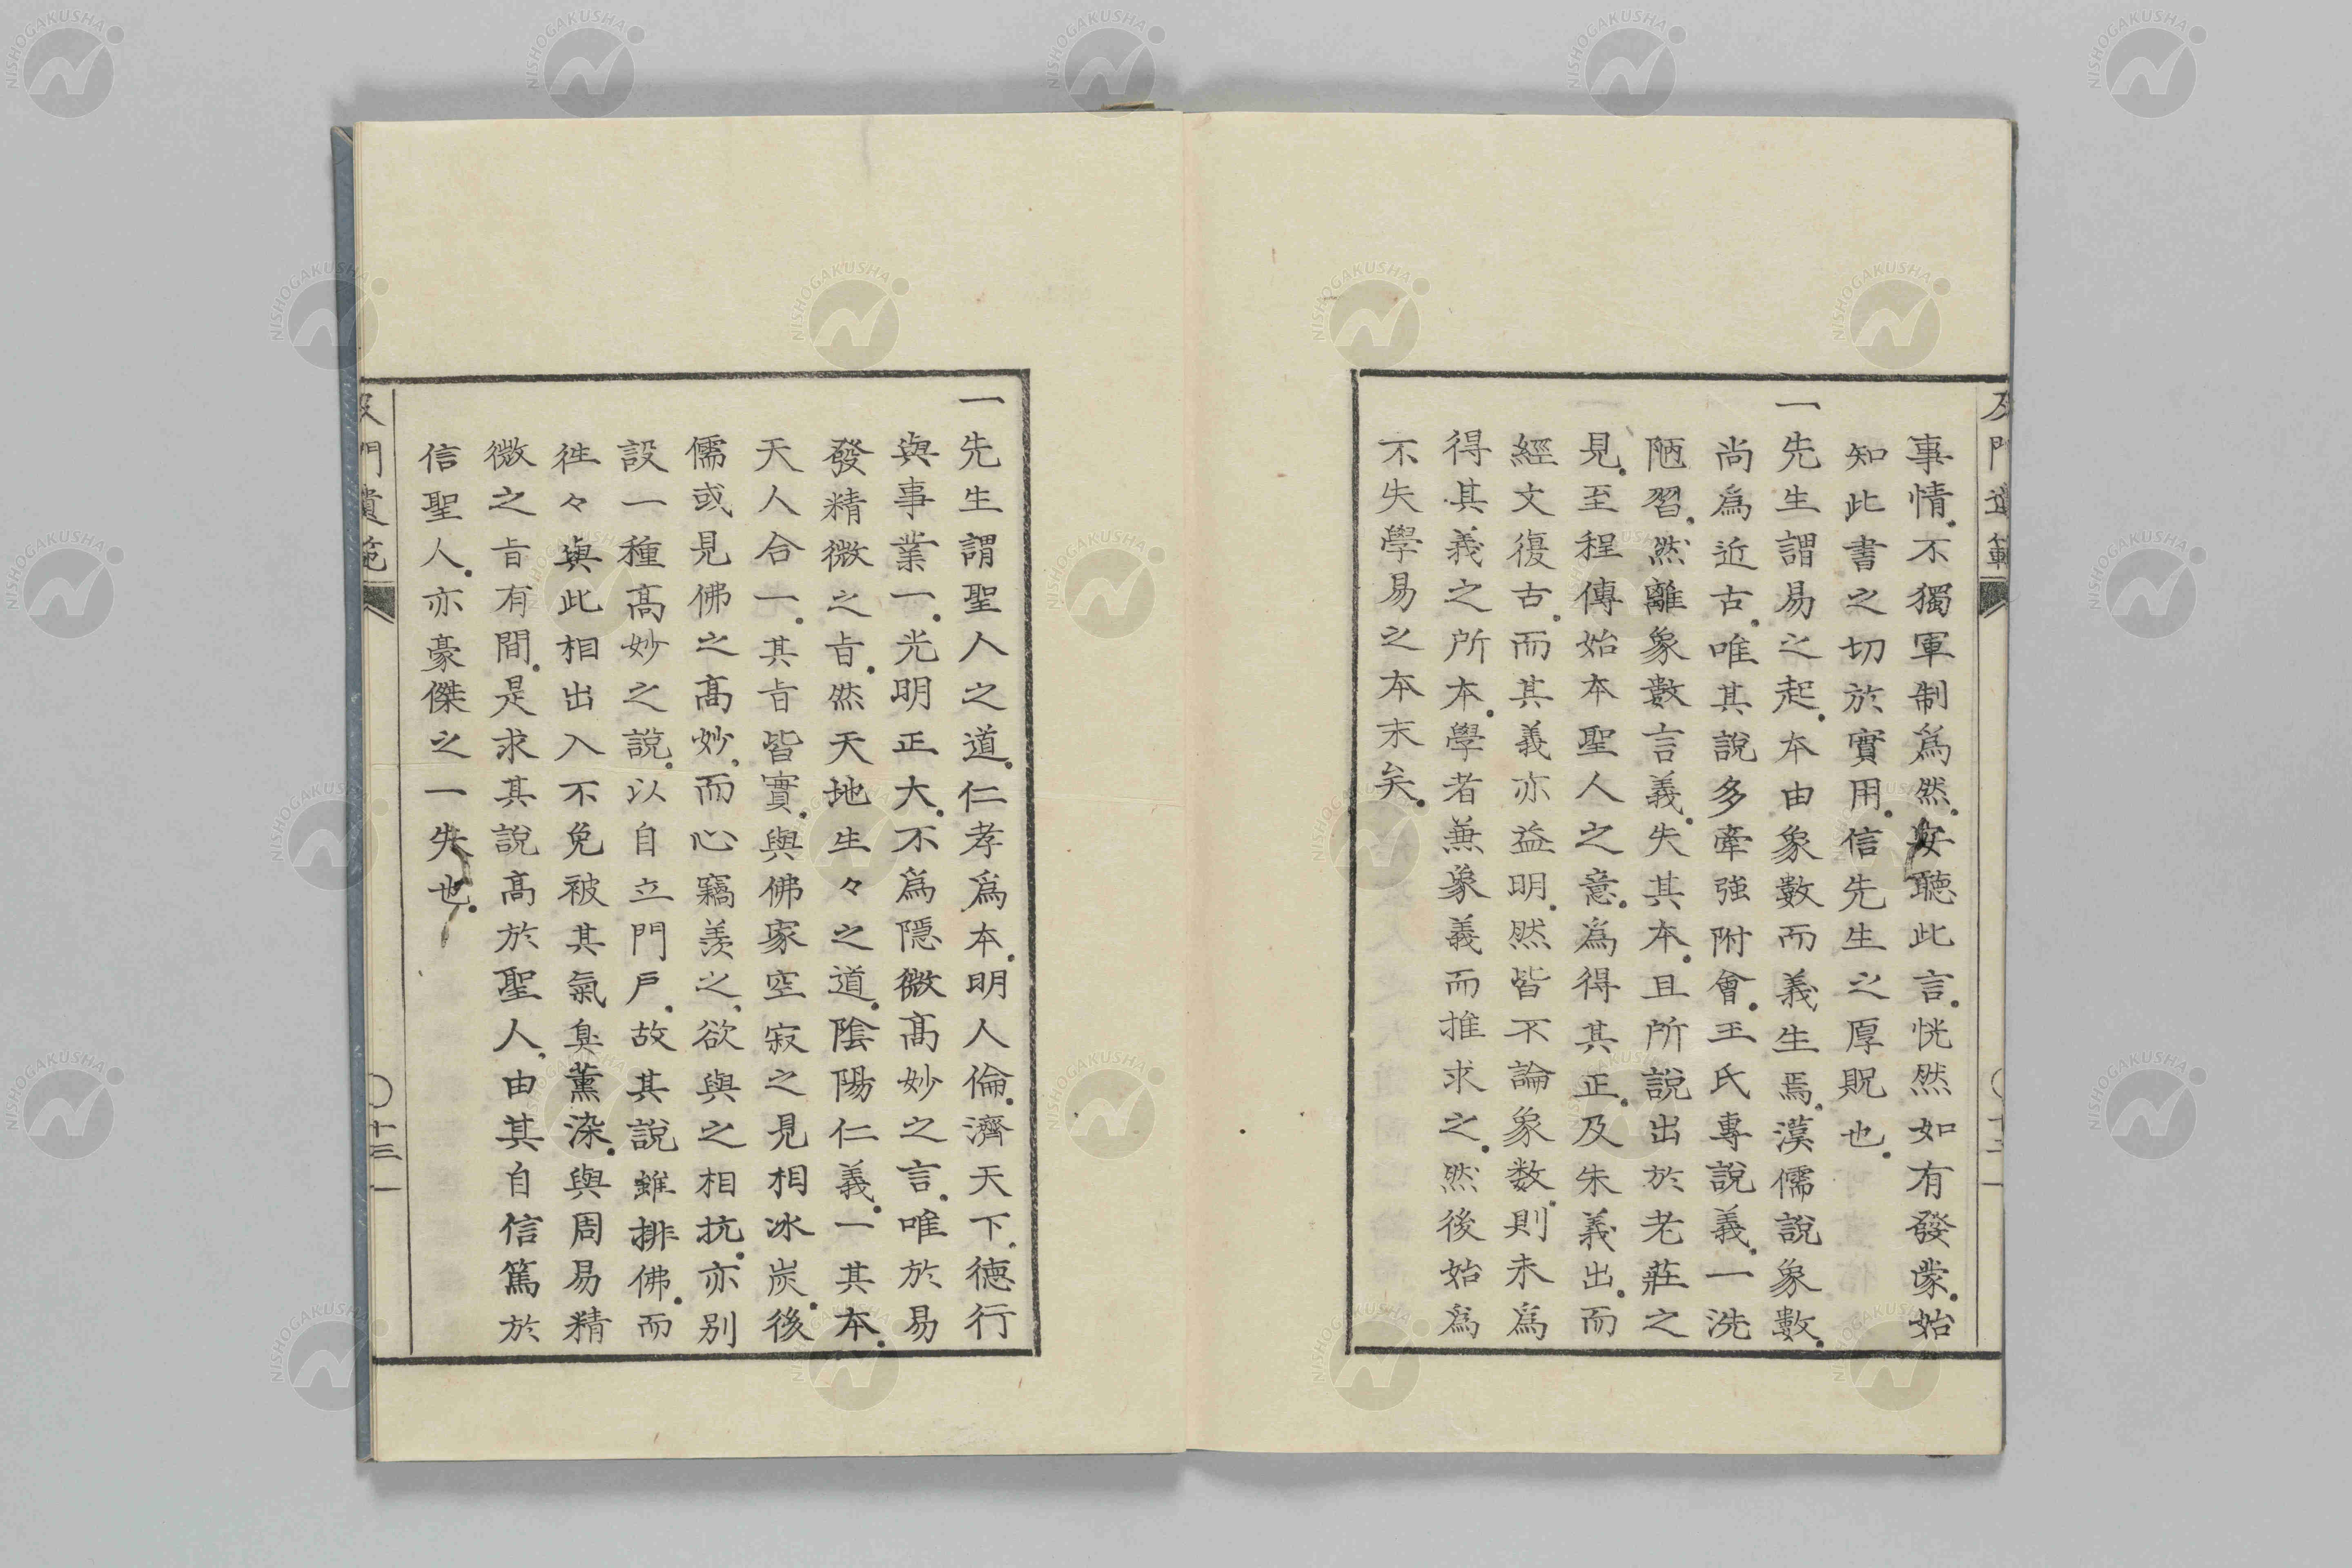 及門遺範
十二
事情、不獨軍制爲然。安聽此言。恍然如有發蒙。始
知此書之切於實用。信先生之厚貺也。
一先生謂易之起。本由象數而義生焉。漢儒說象數。
尚爲近古。唯其說多牽強附會。王氏專說義。一洗
陋習。然離象數言義。失其本。且所說出於老莊之
見。至程傳始本聖人之意。爲得其正。及朱義出。而
經文復古。而其義亦益明。然皆不論象数。則未爲
得其義之所本。學者兼象義而推求之。然後始爲
不失學易之本末矣。
一先生謂聖人之道。仁孝爲本。明人倫。濟天下。德行
與事業一。光明正大。不爲隱微高妙之言。唯於易
發精微之旨。然天地生々之道。陰陽仁義。一其本。
天人合一。其旨皆實。與佛家空寂之見相冰炭。後
儒或見佛之高妙。而心竊羨之、欲與之相抗。亦別
設一種高妙之說。以自立門戶。故其說雖排佛。而
往々與此相出入不免被其氣臭薰染。與周易精
微之旨有間。是求其說高於聖人、由其自信篤於
信聖人。亦豪傑之一失也。
及門遺範
十三
NISHOGAKUSHA